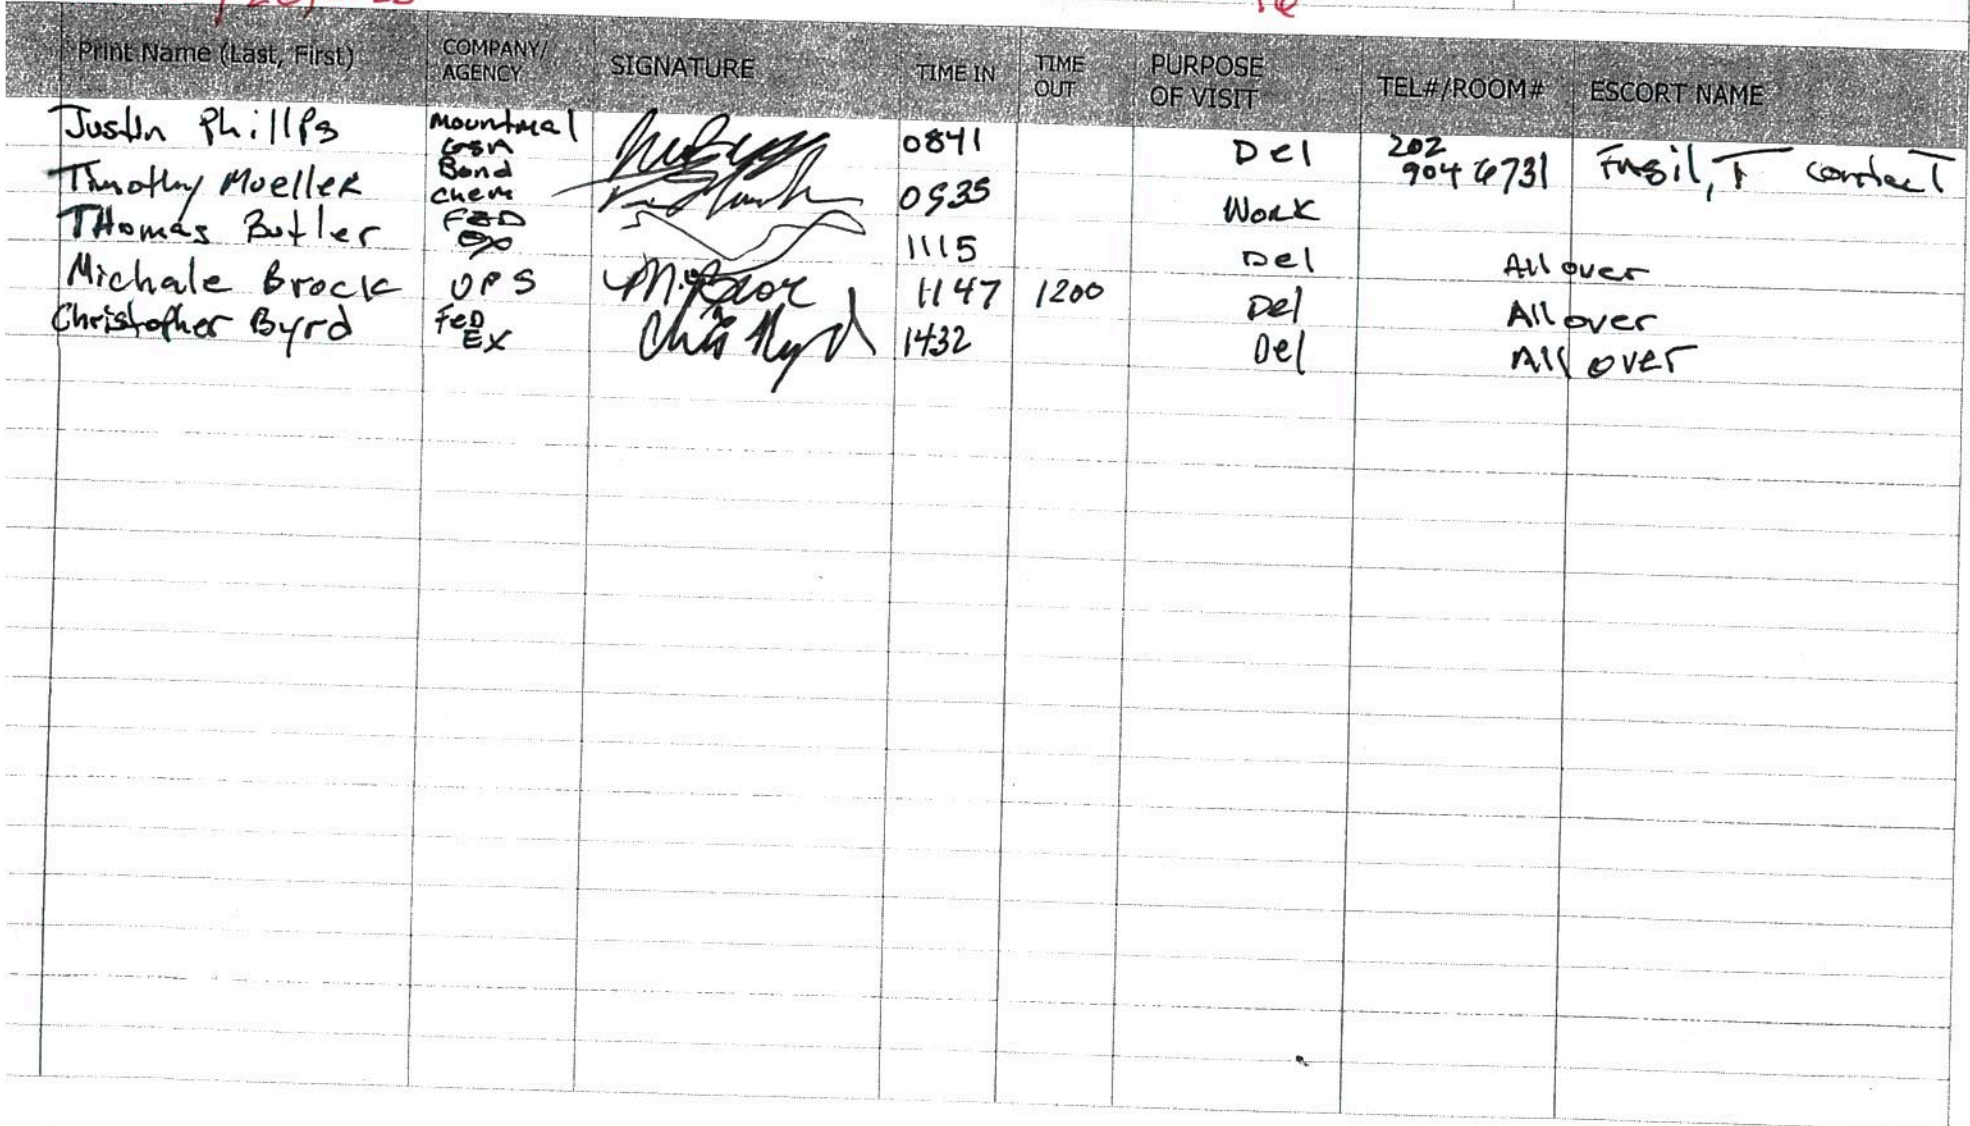 Print Name (Last, First) COMPANY/ AGENCY SIGNATURE TIME IN TIME OUT PURPOSE OF VISIT TEL#/ROOM# ESCORT NAME
Justin Phillps 0841 Del 202 904 6731 contact
Timothy Mueller Bond Chem 0935 Work
THomas Butler FED EX 1115 Del All over
Michale Brock UPS 1147 1200 Del All over
Christopher Byrd FeD EX Chris Byrd 1432 Del All over